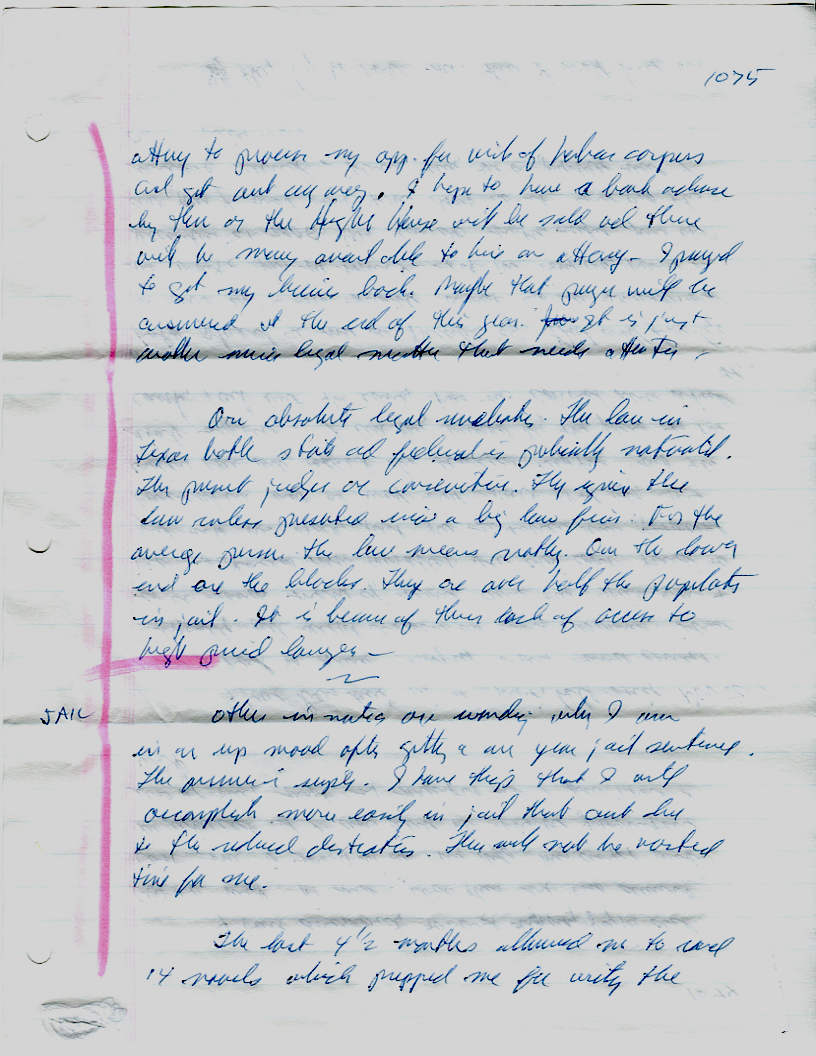 1075
attny to process my app. for writ of habeas corpus
and get out any way. I hope to have a bank
by then or the Hughes House will be sold and there
will be money available to hire an attorney - I prayed
to get my back. Maybe that prayer will be
answered at the end of this year. it is just
another legal matter that needs
One absolute legal The law in
Texas both state ad federal is
The present judges are conservative. They ignore the
law unless presented a big law firm. For the
average person the law means nothing. On the lower
end are the blacks. They are over half the population
in jail. It is because of their lack of access to
high priced lawyers -
JAIL
Other inmates are wondering why I am
in an up mood after getting a one year jail sentence.
The answer is simple. I have things that I will
accomplish more easily in jail that out due
to the reduced distractions. This will not be wasted
time for me.
The last 4 1/2 months allowed me to read
14 novels which prepped me for writing the